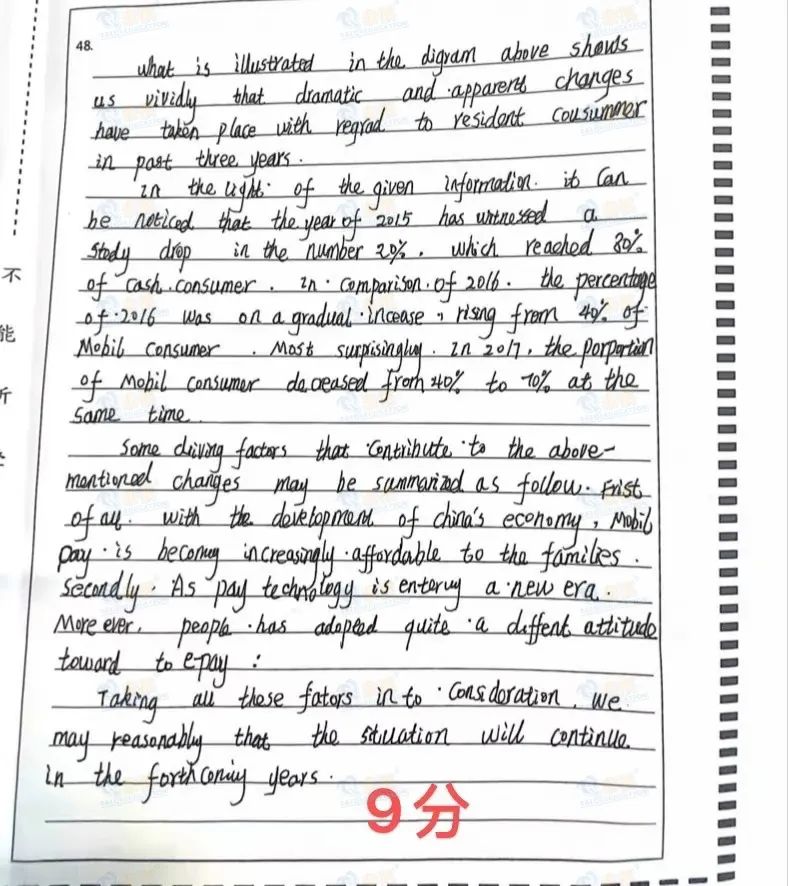 48.
what is illustrated in the digram above shows
us vividly that dramatic and apparent changes
have taken place with regrad to resident cousummer
in past three years.
In the light of the given information. it can
be noticed that the year of 2015 has witnessed a
stedy drop in the number 20%. which reached 80%
of cash consumer. In comparison of 2016. the percentage
of 2016 was on a gradual incease, rising from 40% of
Mobil consumer. Most surprisingly. In 2017, the porportion
of Mobil consumer deceased from 40% to 70% at the
same time.
Some driving factors that contribute to the above-
mentioned changes may be summarized as follow. Frist
of all. with the development of china's economy, Mobil
pay is becoming increasingly affordable to the families.
Secondly. As pay technology is entering a new era.
More ever. people has adopted quite a diffent attitude
toward to e-pay:
Taking all these fators in to consideration. We
may reasonably that the situation will continue
in the forthcoming years.
9分
不
能
折